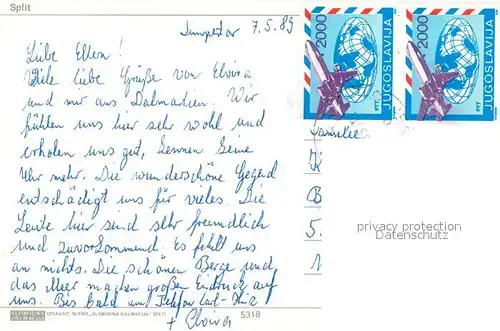 Split
7.5.89
Liebe Eltern!
Viele liebe Grüße von Elvira
und mir aus Dalmatien. Wir
fühlen uns hier sehr wohl und
erholen uns gut, kennen keine
Uhr mehr. Die wunderschöne Gegend
entschädigt uns für vieles. Die
Leute hier sind sehr freundlich
und zuvorkommend. Es fehlt uns
an nichts. Die schönen Berge und
das Meer machen großen Eindruck auf
uns. Bis bald am Telefon
+ Elvira
2000
JUGOSLAVIJA
PTT
2000
JUGOSLAVIJA
PTT
Familie
B
5
1
privacy protection
Datenschutz
SLOBODNA
DALMACIJA
IZDAVAČ: NITRO „SLOBODNA DALMACIJA" SPLIT
5318